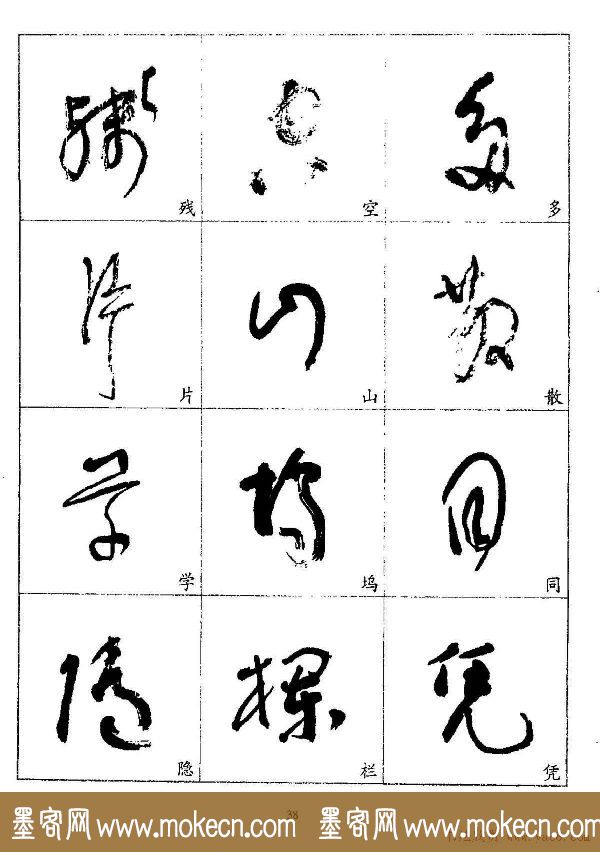 残 空 多
片 山 散
学 坞 同
隐 栏 凭
38
墨客网 www.mokecn.com 墨客网 www.mokecn.com